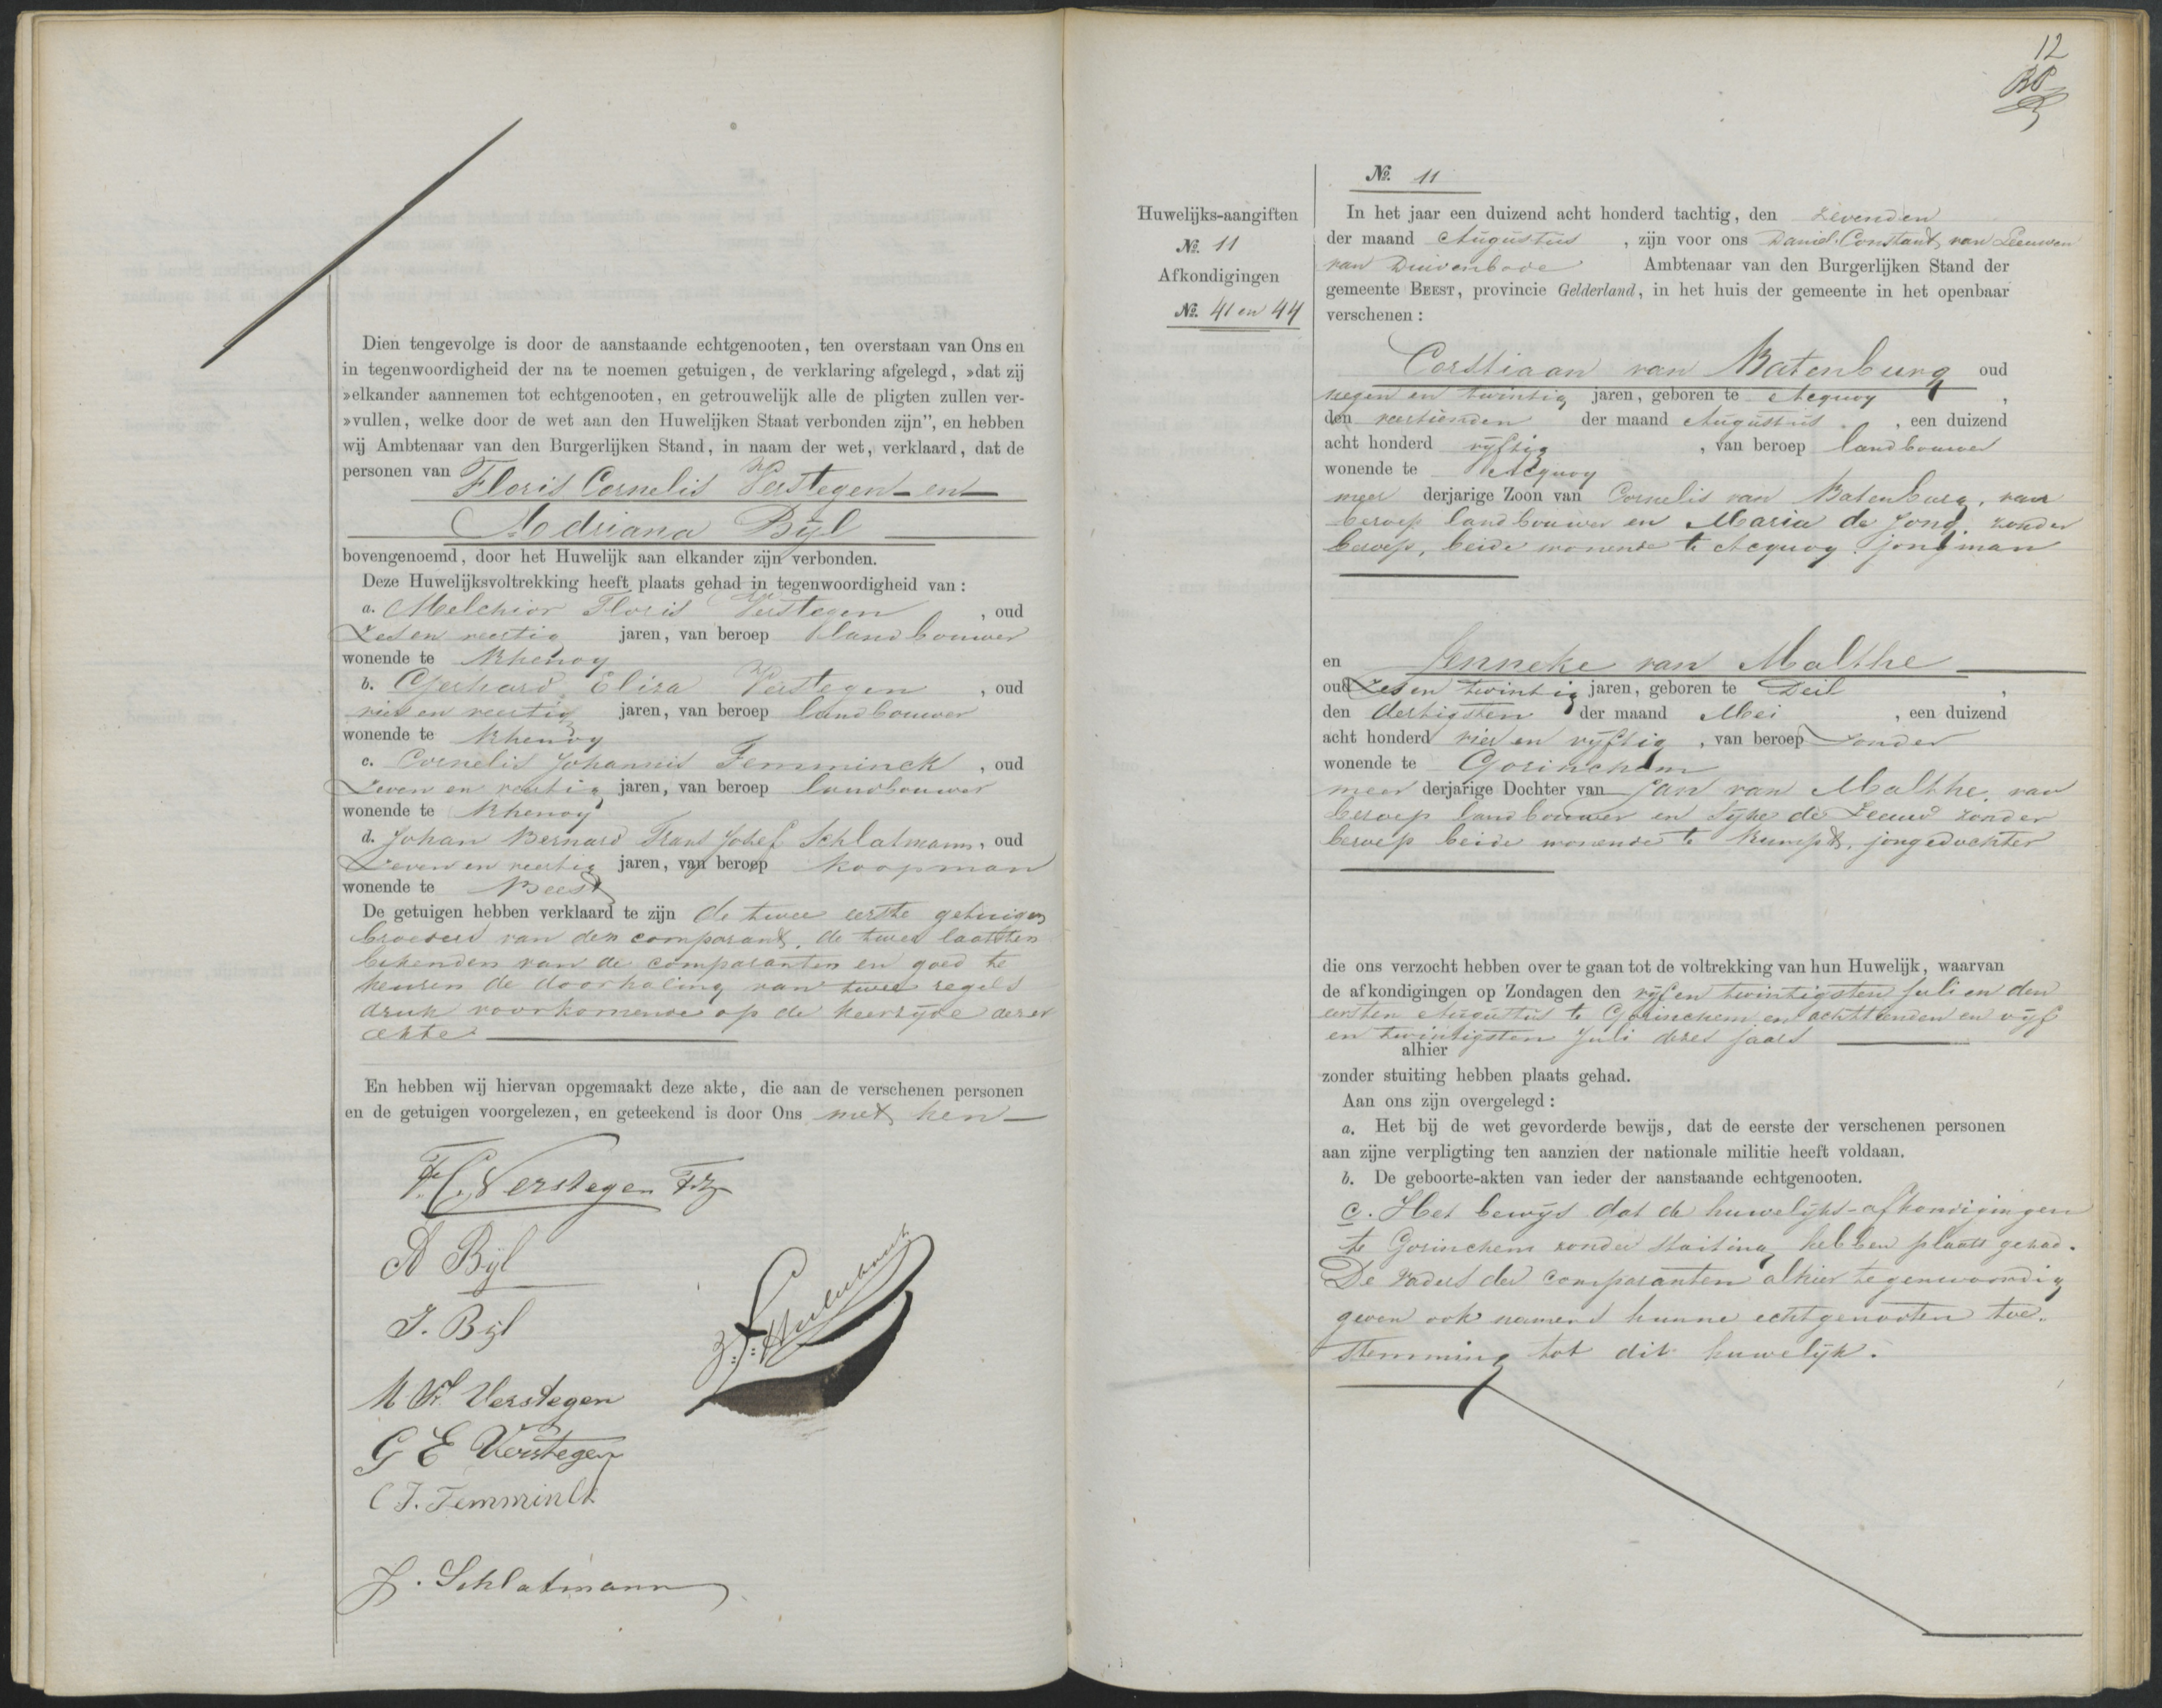 Dien tengevolge is door de aanstaande echtgenooten, ten overstaan van Ons en
in tegenwoordigheid der na te noemen getuigen, de verklaring afgelegd, »dat zij
»elkander aannemen tot echtgenooten, en getrouwelijk alle de pligten zullen ver-
»vullen, welke door de wet aan den Huwelijken Staat verbonden zijn”, en hebben
wij Ambtenaar van den Burgerlijken Stand, in naam der wet, verklaard, dat de
personen van Floris Cornelis Verstegen en
Adriana Bijl
bovengenoemd, door het Huwelijk aan elkander zijn verbonden.
Deze Huwelijksvoltrekking heeft plaats gehad in tegenwoordigheid van:
a. Melchior Floris Verstegen, oud
Zes en veertig jaren, van beroep landbouwer
wonende te Rhenoy
b. Gerhard Eliza Verstegen, oud
vier en veertig jaren, van beroep landbouwer
wonende te Rhenoy
c. Cornelis Johannis Temminck, oud
Zeven en veertig jaren, van beroep landbouwer
wonende te Rhenoy
d. Johan Bernard Frans Josef Schlatmann, oud
Zeven en veertig jaren, van beroep koopman
wonende te Beest
De getuigen hebben verklaard te zijn de twee eerste getuigen
broeders van den comparant, de twee laatsten
bekenden van de comparanten en goed te
keuren de doorhaling van twee regels
druk voorkomende op de keerzijde dezer
akte
En hebben wij hiervan opgemaakt deze akte, die aan de verschenen personen
en de getuigen voorgelezen, en geteekend is door Ons met hen
F. C. Verstegen Fz
A Bijl
J. Bijl
M F. Verstegen
G E Verstegen
C J. Temminck
J. Schlatmann
12
Huwelijks-aangiften
No. 11
Afkondigingen
No. 41 en 44
No. 11
In het jaar een duizend acht honderd tachtig, den zevenden
der maand Augustus, zijn voor ons Daniel Constant van Leeuwen
van Duivenbode Ambtenaar van den Burgerlijken Stand der
gemeente BEEST, provincie Gelderland, in het huis der gemeente in het openbaar
verschenen:
Corstiaan van Batenburg oud
negen en twintig jaren, geboren te Acquoy,
den veertienden der maand Augustus, een duizend
acht honderd vijftig, van beroep landbouwer
wonende te Acquoy
meer derjarige Zoon van Cornelis van Batenburg, van
beroep landbouwer en Maria de Jong, zonder
beroep, beide wonende te Acquoy. jongman
en Jenneke van Malthe
oud Zes en twintig jaren, geboren te Deil,
den dertigsten der maand Mei, een duizend
acht honderd vier en vijftig, van beroep zonder
wonende te Gorinchem
meer derjarige Dochter van Jan van Malthe, van
beroep landbouwer en Sijke de Leeuw zonder
beroep beide wonende te Rumpt, jongedochter
die ons verzocht hebben over te gaan tot de voltrekking van hun Huwelijk, waarvan
de afkondigingen op Zondagen den vijf en twintigsten Juli en den
eersten Augustus te Gorinchem en achttienden en vijf
en twintigsten Juli dezes jaars
alhier
zonder stuiting hebben plaats gehad.
Aan ons zijn overgelegd:
a. Het bij de wet gevorderde bewijs, dat de eerste der verschenen personen
aan zijne verpligting ten aanzien der nationale militie heeft voldaan.
b. De geboorte-akten van ieder der aanstaande echtgenooten.
c. Het bewijs dat de huwelijks-afkondigingen
te Gorinchem zonder stuiting hebben plaats gehad.
De vaders der comparanten alhier tegenwoordig
geven ook namens hunne echtgenooten toe-
stemming tot dit huwelijk.